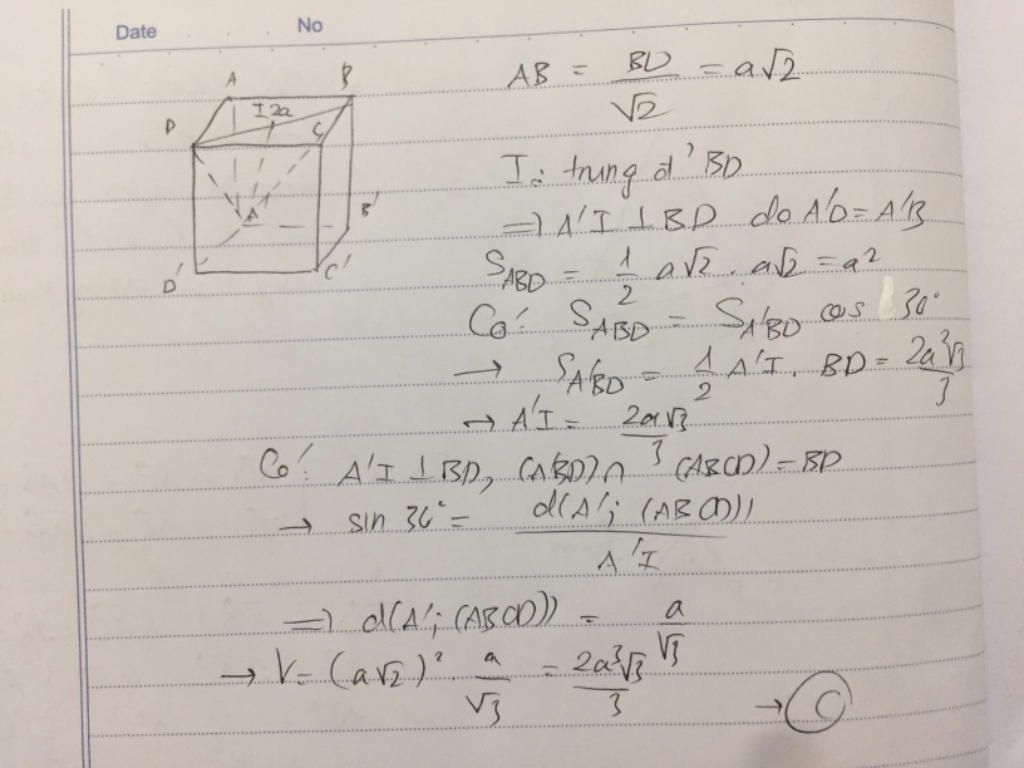 Date No
A B
I 2a
D C
A' B'
D' C'
AB = BD/√2 = a√2
I: trung đ' BD
=> A'I ⊥ BD do A'D = A'B
S_ABD = 1/2 a√2 . a√2 = a²
Có: S_ABD = S_A'BD cos 30°
→ S_A'BD = 1/2 A'I . BD = 2a²√3/3
→ A'I = 2a√3/3
Có: A'I ⊥ BD, (A'BD) ∩ (ABCD) = BD
→ sin 30° = d(A'; (ABCD))/A'I
=> d(A'; (ABCD)) = a/√3
→ V = (a√2)² . a/√3 = 2a³√3/3
→ C